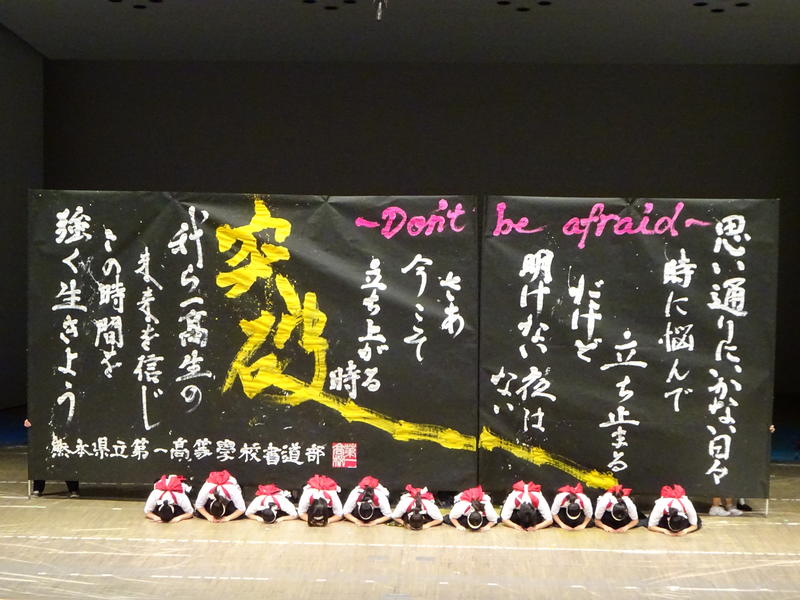 ~Don't be afraid~
思い通りにいかない日々
時に悩んで
立ち止まる
だけど
明けない夜は
ない
さあ
今こそ
立ち上がる
時
突破
我ら一高生の
未来を信じ
この時間を
強く生きよう
熊本県立第一高等學校書道部